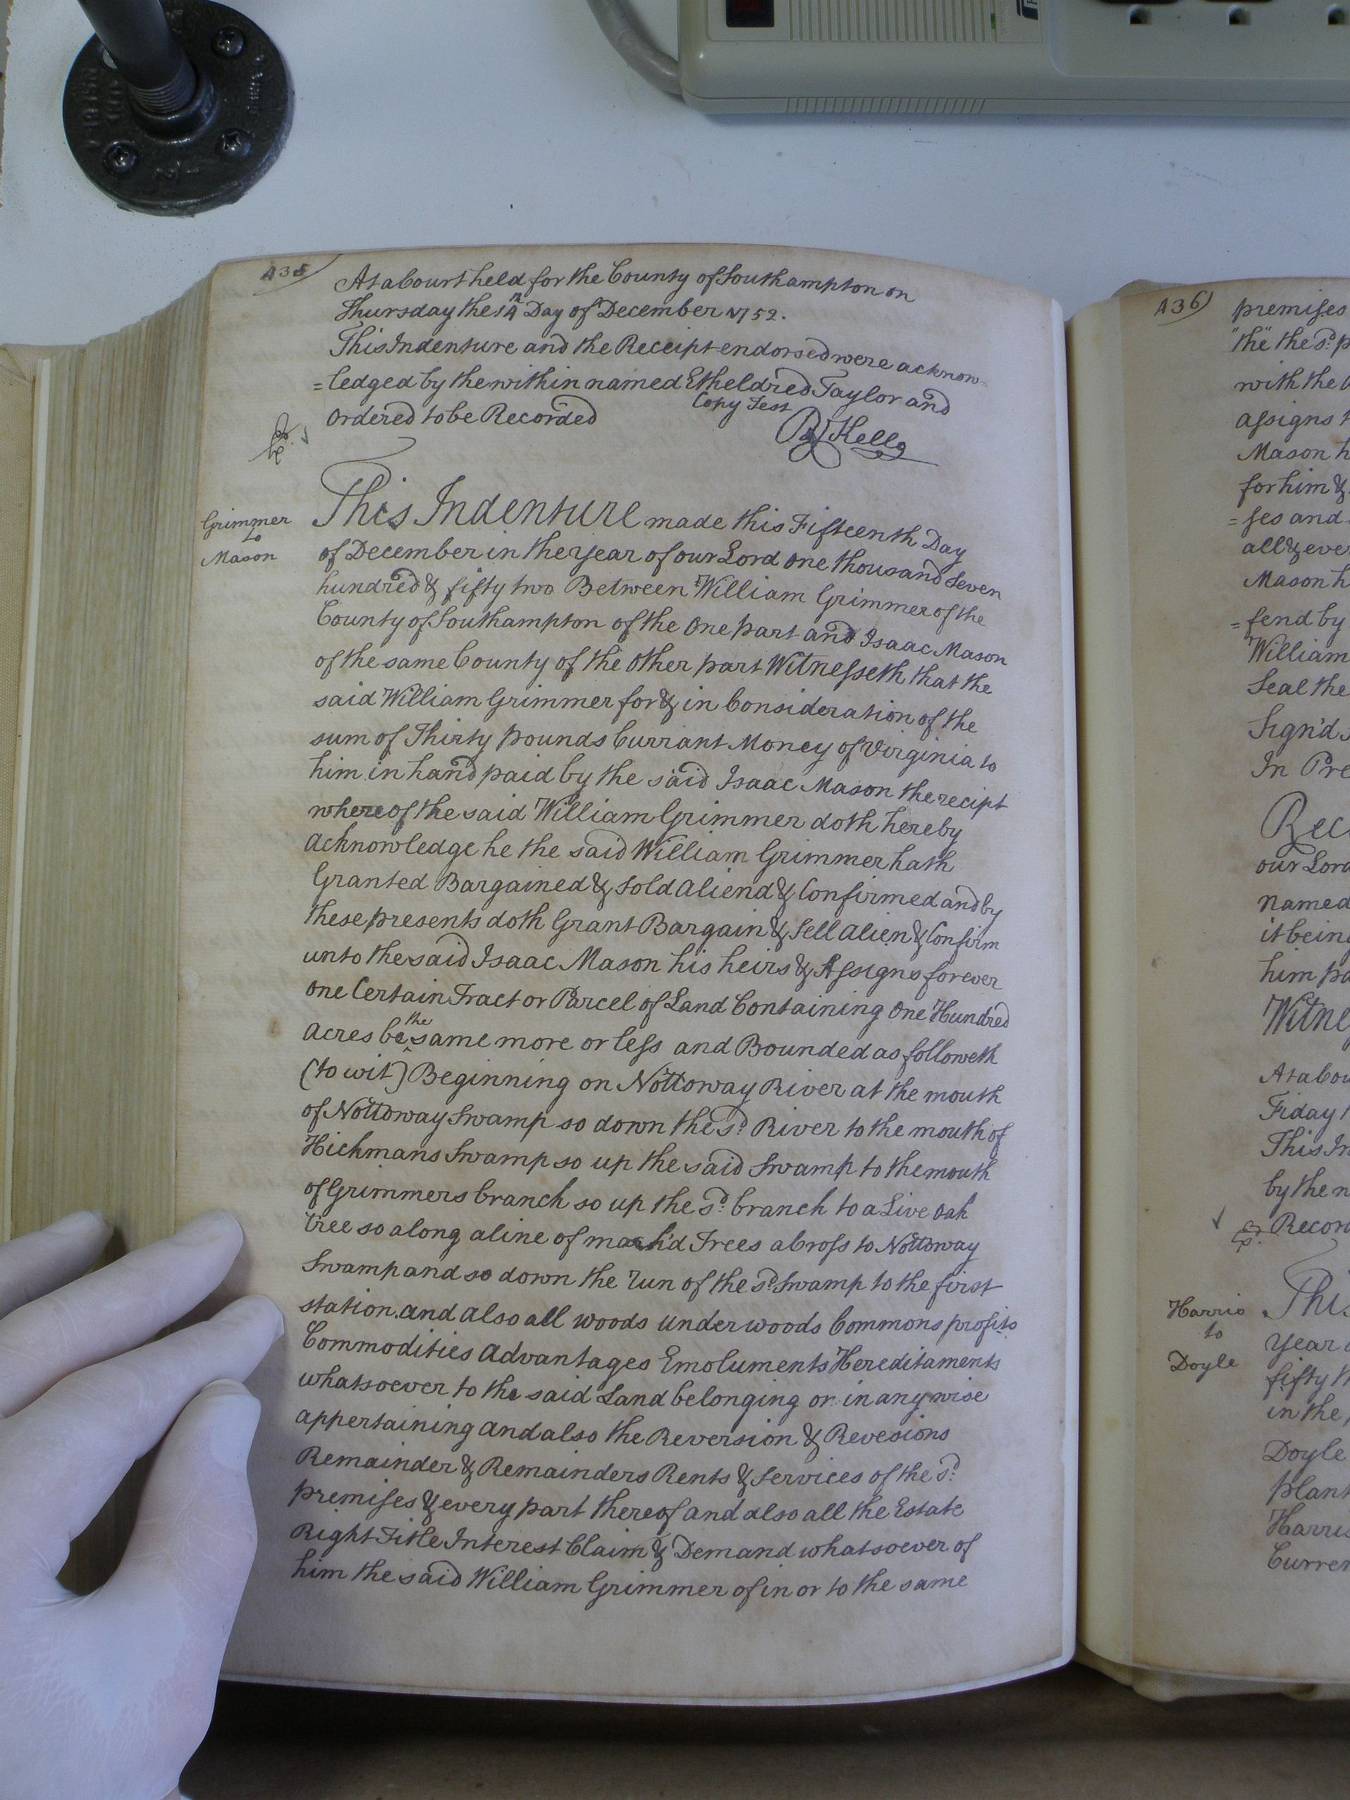 435
At a Court held for the County of Southampton on
Thursday the 14 Day of December 1752.
This Indenture and the Receipt endorsed were acknow-
=ledged by the within named Etheldred Taylor and
Ordered to be Recorded
Copy Test
Kello
Grimmer
to
Mason
This Indenture made this Fifteenth Day
of December in the year of our Lord one thousand Seven
hundred & fifty two Between William Grimmer of the
County of Southampton of the One part and Isaac Mason
of the same County of the Other part Witnesseth that the
said William Grimmer for & in Consideration of the
sum of Thirty pounds Currant Money of Virginia to
him in hand paid by the said Isaac Mason the recipt
whereof the said William Grimmer doth hereby
Acknowledge he the said William Grimmer hath
Granted Bargained & Sold Aliend & Confirmed and by
these presents doth Grant Bargain & Sell Alien & Confirm
unto the said Isaac Mason his heirs & Assigns forever
one Certain Tract or Parcel of Land Containing One Hundred
Acres be the same more or less and Bounded as followeth
(to wit) Beginning on Nottoway River at the mouth
of Nottoway Swamp so down the sd. River to the mouth of
Hickmans Swamp so up the said Swamp to the mouth
of Grimmers branch so up the sd. branch to a Live Oak
tree so along a line of mark'd Trees abross to Nottoway
Swamp and so down the run of the sd. Swamp to the first
station. and also all woods underwoods Commons profits
Commodities Advantages Emoluments Hereditaments
whatsoever to the said Land belonging or in any wise
appertaining and also the Reversion & Revesions
Remainder & Remainders Rents & Services of the sd.
premises & every part thereof and also all the Estate
Right Title Interest Claim & Demand whatsoever of
him the said William Grimmer of in or to the same
436
premises
"the" the sd. p
with the
assigns
Mason h
for him &
=ses and
all & ever
Mason h
=fend by
William
Seal the
Sign'd
In Pre
Rec
our Lord
named
it being
him pa
Witne
At a Cou
Fiday
This In
by the n
Recor
Harris
to
Doyle
This
year
fifty th
in the
Doyle
plant
Harris
Curren